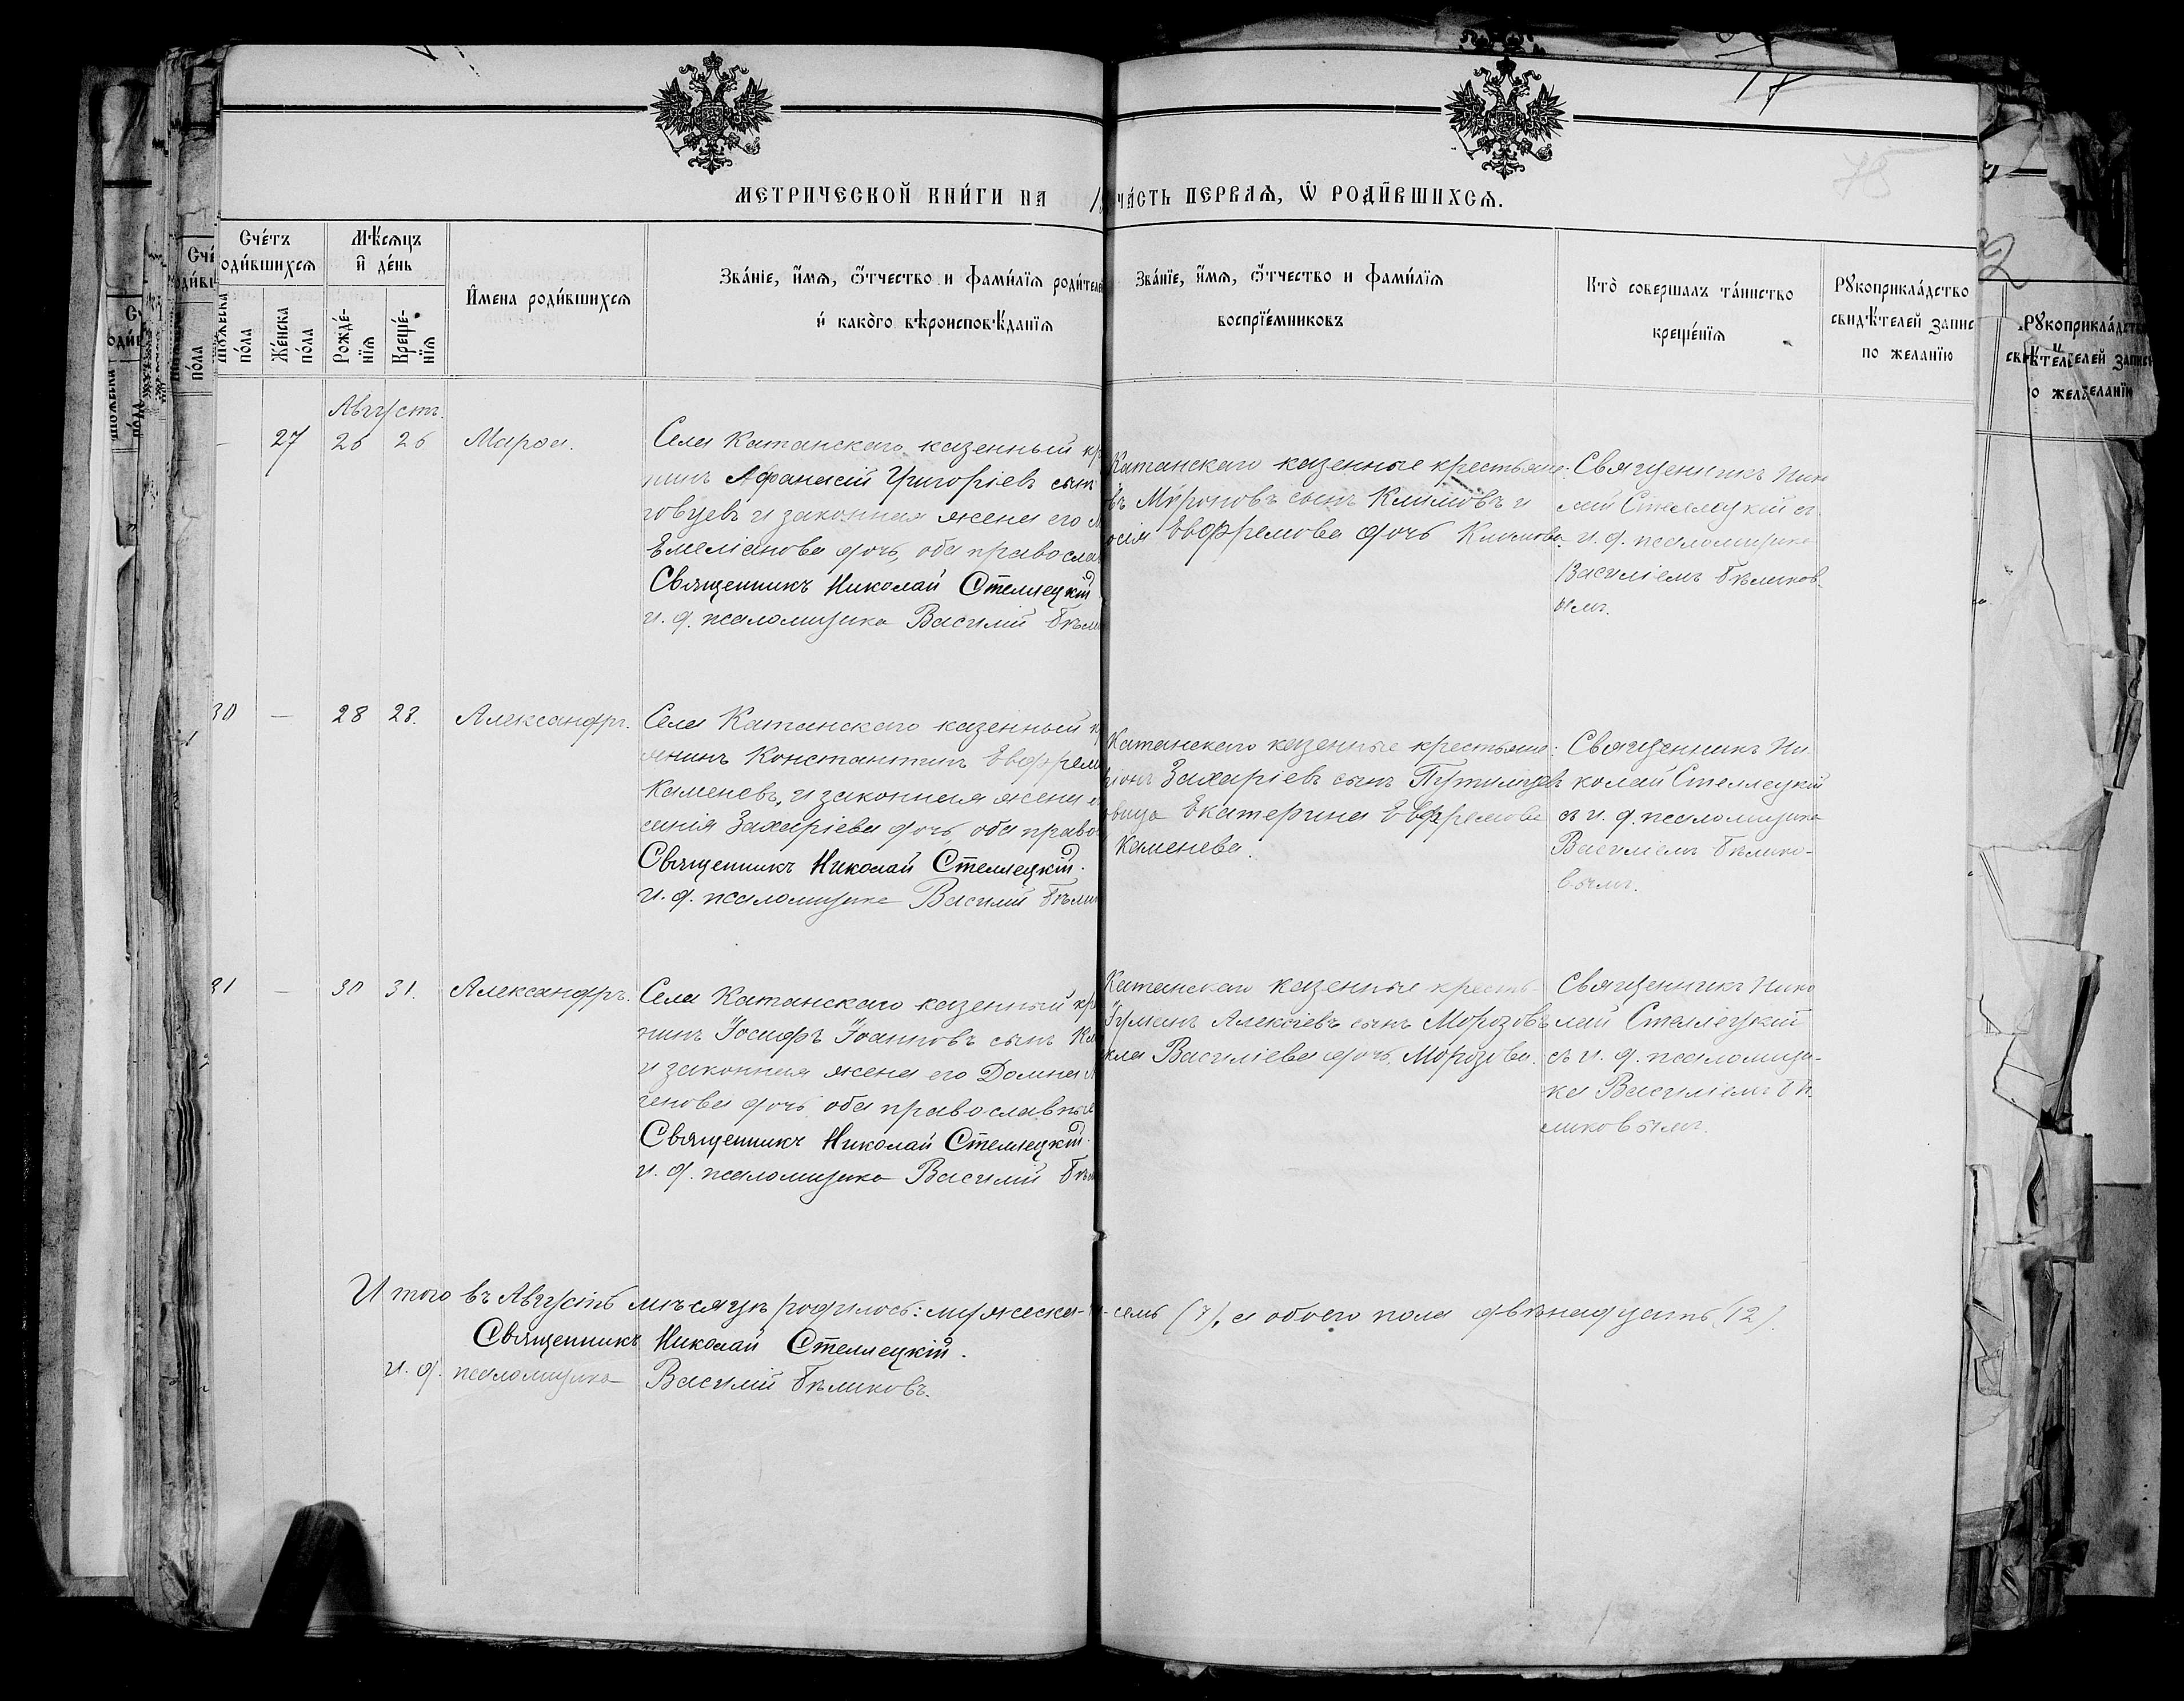 17
75
МЕТРИЧЕСКОЙ КНИ́ГИ НА
ЧА́СТЬ ПЕРВАѦ, Ѿ РОДИ́ВШИХСѦ.
Сче́тъ
оди́вшихсѧ
Мѣ́сѧцъ
и де́нь
И҆мена роди́вшихсѧ
Зва́нїе, и҆́мѧ, ѻ҆́тчество и фами́лїѧ роди́телей
и какого вѣроисповѣ́данїѧ
Же́нска
по́ла
Рожде́-
нїѧ
Креще́-
нїѧ
Зва́нїе, и҆́мѧ, ѻ҆́тчество и фами́лїѧ
воспрїе́мниковъ
Кто̀ соверша́лъ та́инство
креще́нїѧ
Рꙋкоприкла́дство
свидѣ́телей запис
по желанїю
Августъ.
— 27 26 26 Марѳа.
Села Катанскаго казенный кр
нинъ Афанасій Григоріевъ сынъ
говцевъ и законная жена его
Емеліанова дочь, оба правосла
Священникъ Николай Стеллецкій
и. д. псаломщика Василий Бѣли
Катанскаго казенные крестьяне:
въ Мироновъ сынъ Климовъ и
осія Евфремова дочь Климова.
Священникъ Нико
лай Стеллецкій съ
и. д. псаломщика
Василіемъ Бѣликов
ымъ.
30 — 28 28. Александръ.
Села Катанскаго казенный к
янинъ Константинъ Евфрем
Каменевъ, и законная жена е
синія Захаріева дочь, оба право
Священникъ Николай Стеллецкій.
и. д. псаломщика Василий Бѣли
Катанскаго казенные крестьяне:
ріонъ Захаріевъ сынъ Путилцев
вица Екатерина Евфремова
Каменева.
Священникъ Ни
колай Стеллецкій
съ и. д. псаломщика
Василіемъ Бѣлико-
вымъ.
31 — 30 31. Александръ.
Села Катанскаго казенный кр
нинъ Іосифъ Іоанновъ сынъ
и законная жена его Домна
генова дочь, оба православные
Священникъ Николай Стеллецкій.
и. д. псаломщика Василий Бѣл
Катанскаго казенные кресть-
Гуменъ Алексіевъ сынъ Морозовъ
кла Василіева дочь Морозова.
Священникъ Нико
лай Стеллецкій
съ и. д. псаломщи-
ка Василіемъ Бѣ
ликовымъ.
Итого въ Августѣ мѣсяцѣ родилось: мужеска-
семь (7), а обоего пола двѣнадцать (12).
Священникъ Николай Стеллецкій.
и. д. псаломщика Василий Бѣликовъ.